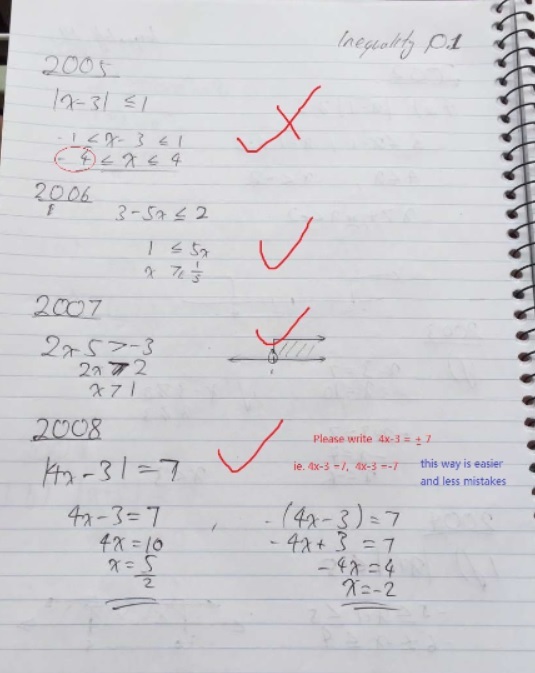 Inequality p.1
2005
|x-3| ≤ 1
-1 ≤ x-3 ≤ 1
- 4 ≤ x ≤ 4
2006
3-5x ≤ 2
1 ≤ 5x
x ≥ 1/5
2007
2x-5 > -3
2x > 2
x > 1
2008
Please write 4x-3 = ± 7
|4x-3| = 7
ie. 4x-3 =7, 4x-3 =-7
this way is easier
and less mistakes
4x-3=7 , -(4x-3)=7
4x=10 -4x+3 =7
x=5/2 -4x=4
x=-2